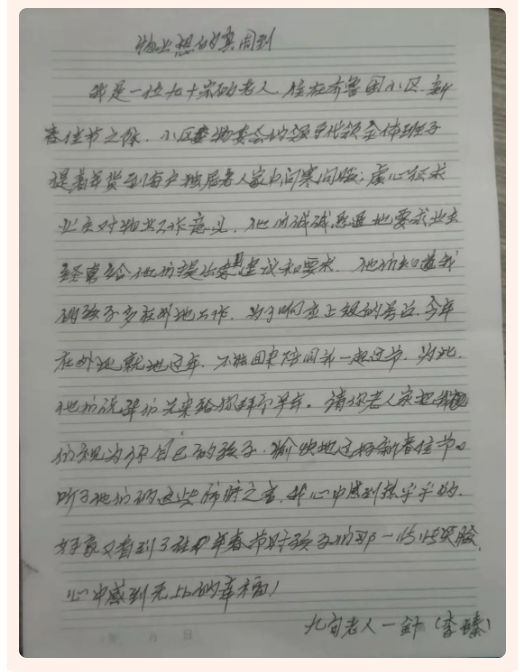 物业想的真周到
我是一位九十岁的老人，住在齐鲁园小区，新
春佳节之际，小区物委会的领导代领全体班子
提着年货到每户独居老人家中问寒问暖；虚心征求
业主对物业工作意见，他们诚诚恳恳地要求业主
经常给他们提出建议和要求，他们知道我
的孩子多在外地工作，为了响应上级的号召，今年
在外地就地过年，不能回来陪同我一起过节，为此，
他们说我们先来给你拜个早年。请你老人家把我
们视为你自己的孩子，愉快地过好新春佳节。
听了他们的这些肺腑之言，我心中感到热乎乎的，
好象又看到了往年春节时孩子们那一张张笑脸，
心中感到无比的幸福！
九旬老人一封（李
年 月 日